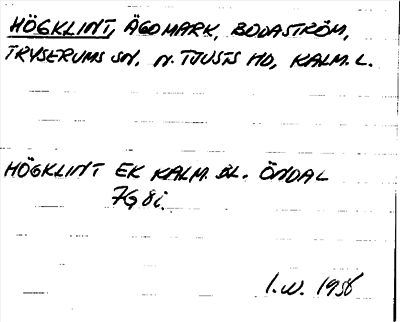 HÖGKLINT, ÄGOMARK, BODASTRÖM,
TRYSERUMS SN, N. TJUSTS HD, KALM. L.
HÖGKLINT EK KALM. BL. ÖNDAL
7G 8i.
I.W. 1956